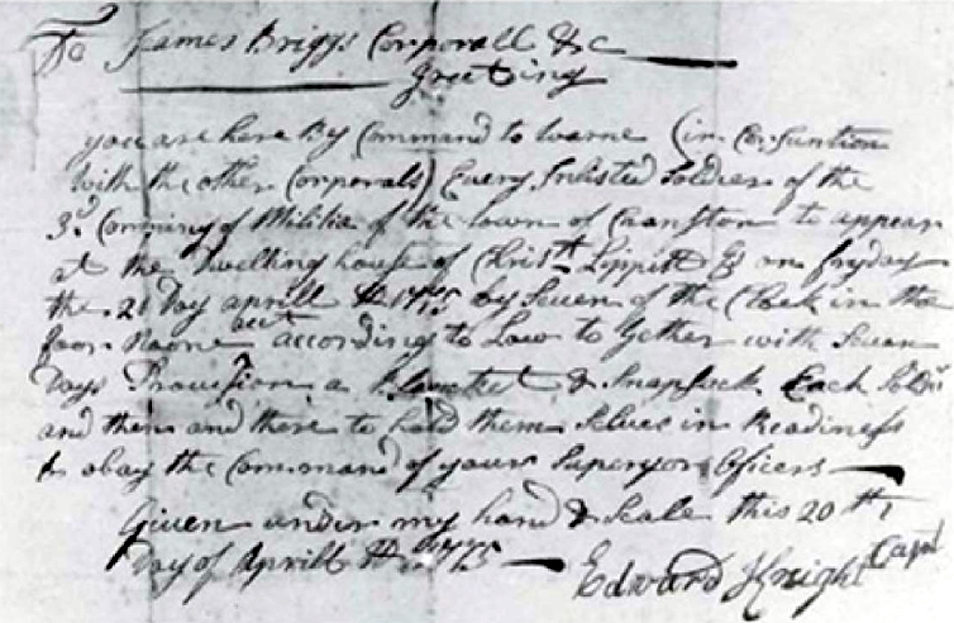 To James Briggs Corporall &c
Greeting
you are here By Command to warne (in Conjuntion
with the other Corporals) Every Inlisted Soldier of the
3d Commpny of Militia of the town of Cranston to appear
at the Dwelling house of Christr Lippitt Es on fryday
the 21 Day aprill AD 1775 by Seven of the Clock in the
foor Noone acut according to Law to Gether with Seven
Days Provission a Blancket & Snapsack Each Soldir
and then and there to hold them Selves in Readiness
to obay the Command of your Superyor Oficers
Given under my hand & Seale this 20th
Day of Aprill AD 1775
Edward Knight Capt